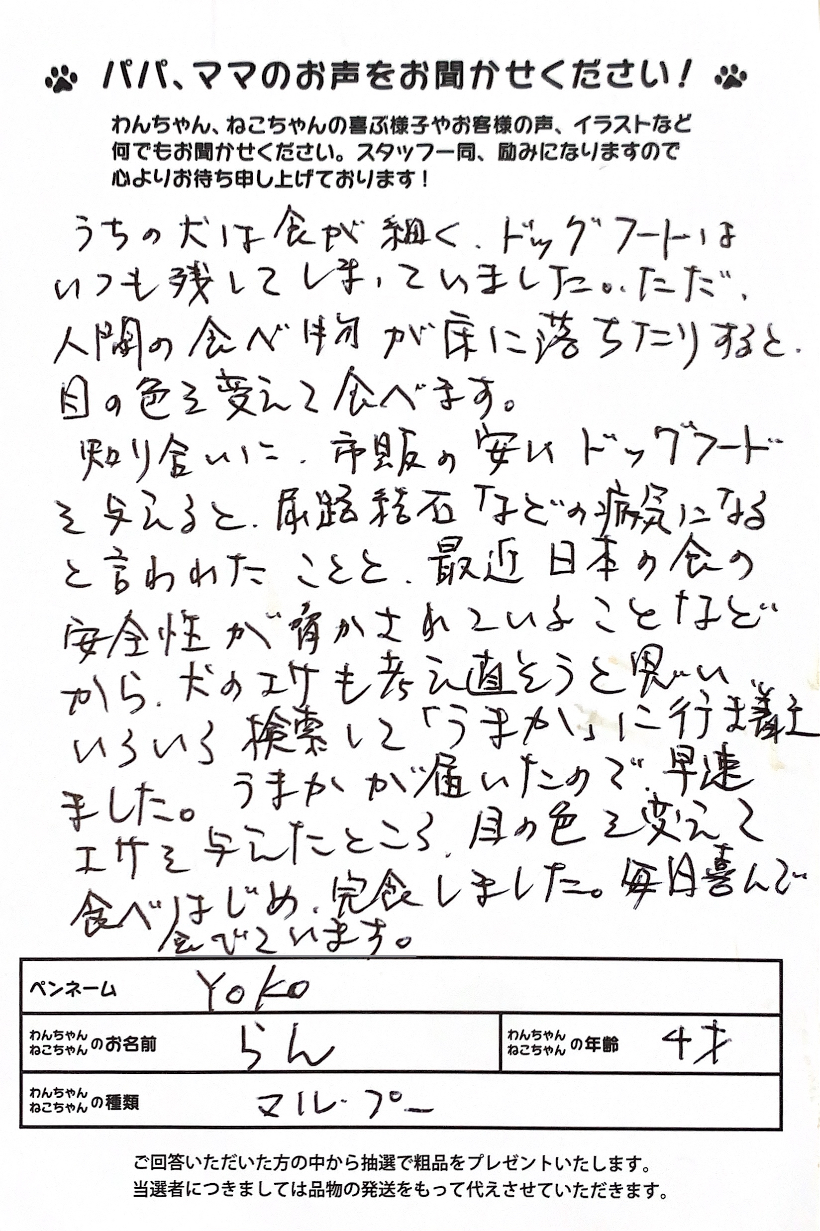 パパ、ママのお声をお聞かせください！
わんちゃん、ねこちゃんの喜ぶ様子やお客様の声、イラストなど
何でもお聞かせください。スタッフ一同、励みになりますので
心よりお待ち申し上げております！
うちの犬は食が細く、ドッグフードは
いつも残してしまっていました。ただ、
人間の食べ物が床に落ちたりすると、
目の色を変えて食べます。
知り合いに、市販の安いドッグフード
を与えると、尿路結石などの病気になる
と言われたことと、最近日本の食の
安全性が脅かされていることなど
から、犬のエサも考え直そうと思い、
いろいろ検索して「うまか」に行き着き
ました。うまかが届いたので、早速
エサを与えたところ、目の色を変えて
食べはじめ、完食しました。毎日喜んで
食べています。
ペンネーム YOKO
わんちゃん ねこちゃん のお名前 らん わんちゃん ねこちゃん の年齢 4才
わんちゃん ねこちゃん の種類 マル・プー
ご回答いただいた方の中から抽選で粗品をプレゼントいたします。
当選者につきましては品物の発送をもって代えさせていただきます。